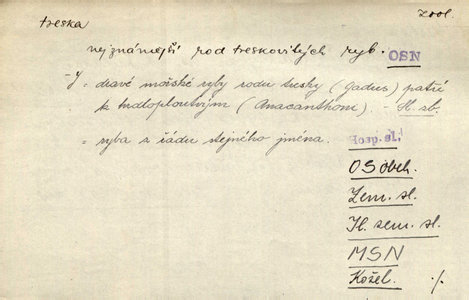 treska zool.
nejznámější rod treskovitých ryb. OSN
-y = dravé mořské ryby rodu tresky (Gadus) patří
k tvrdoploutvým (Anacanthom). - Sl. sb.
= ryba z řádu stejného jména. Hosp. sl.
OS obch.
Zem. sl.
Sl. zem. sl.
MSN
Kožel. %